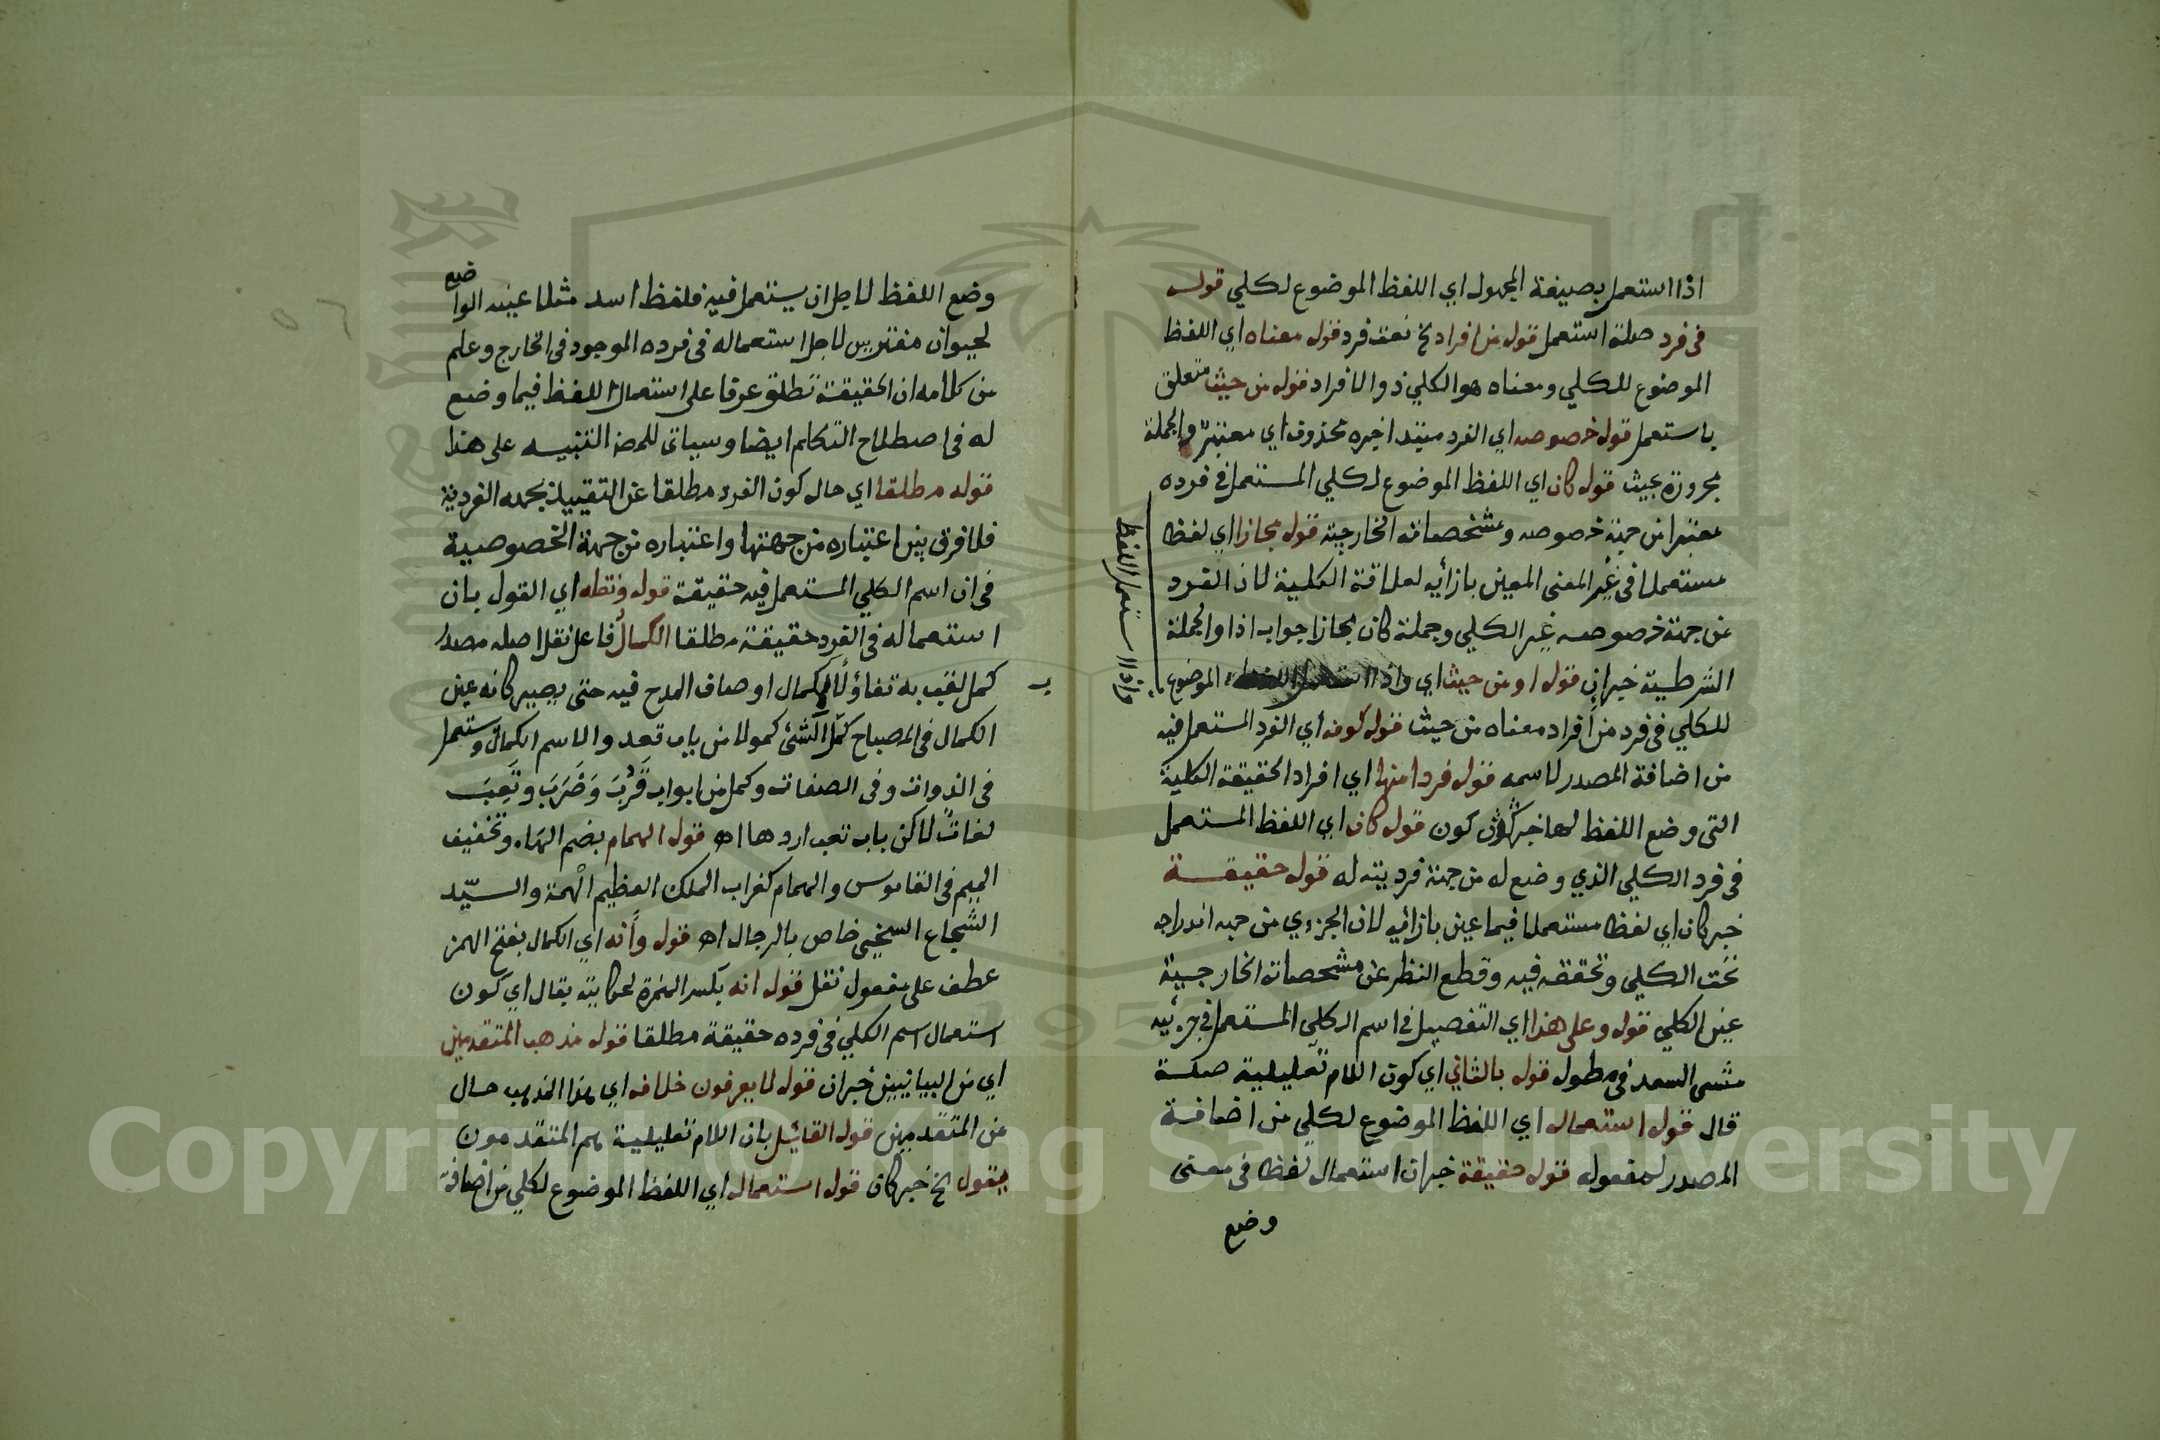 اذا استعمل بصيغة المجهول اي اللفظ الموضوع لكلي قوله
في فرد صلة استعمل قوله من افراد الخ نعت فرد قوله معناه اي اللفظ
الموضوع للكلي ومعناه هو الكلي ذو الافراد قوله من حيث متعلق
باستعمل قوله خصوصه اي الفرد مبتدا خبره محذوف اي معتبر والجملة
مجرورة بحيث قوله كان اي اللفظ الموضوع لكلي المستعمل في فرده
معتبرا من جهة خصوصه ومشخصاته الخارجية قوله مجازا اي لفظا
مستعملا في غير المعنى المعين بازائه لعلاقة الكلية لان الفرد
من جهة خصوصه غير الكلي وجملة كان مجازا جواب اذا والجملة
الشرطية خبر ان قوله او من حيث اي واذا الموضوع
واذا استعمل اللفظ
للكلي في فرد من افراد معناه من حيث قوله كونه اي الفرد المستعمل فيه
من اضافة المصدر لاسمه قوله فردا منها اي افراد الحقيقة الكلية
التي وضع اللفظ لها خبر كون قوله كان اي اللفظ المستعمل
في فرد الكلي الذي وضع له من جهة فرديته له قوله حقيقة
خبر كان اي لفظا مستعملا فيما عين بازائه لان الجزءي من جهة اندراجه
تحت الكلي وتحققه فيه وقطع النظر عن مشخصاته الخارجية
عين الكلي قوله وعلى هذا اي التفصيل في اسم الكلي المستعمل في جزئيه
مشى السعد في مطوله قوله بالثاني اي كون اللام تعليلية صلة
قال قوله استعماله اي اللفظ الموضوع لكلي من اضافة
المصدر لمفعوله قوله حقيقة خبر ان استعمال لفظ في معنى
وضع
وضع اللفظ لاجل ان يستعمل فيه فلفظ اسد مثلا عينه الواضع
لحيوان مفترس لاجل استعماله في فرده الموجود في الخارج وعلم
من كلامه ان الحقيقة تطلق عرفا على استعمال اللفظ فيما وضع
له في اصطلاح التكلم ايضا وسياتي للمص التنبيه على هذا
قوله مطلقا اي حال كون الفرد مطلقا عن التقييد بجهة الفردية
فلا فرق بين اعتباره من جهتها واعتباره من جهة الخصوصية
في ان اسم الكلي المستعمل فيه حقيقة قوله ونقله اي القول بان
استعماله في الفرد حقيقة مطلقا الكمال فاعل نقل اصله مصدر
كمل لقب به تفاؤلا لكمال اوصاف المدح فيه حتى يصير كانه عين
الكمال في المصباح كمل الشئ كمولا من باب قعد والاسم الكمال ويستعمل
في الذوات وفي الصفات وكمل من ابواب قَرُبَ وَضَرَبَ وتَعِبَ
لغات لاكن باب تعب اردها اه قوله الهمام بضم الهاء وتخفيف
الميم في القاموس والهمام كغراب الملك العظيم الهمة والسيّد
الشجاع السخي خاص بالرجال اه قوله وأنه اي الكمال بفتح الهمز
عطف على مفعول نقل قوله انه بكسر الهمزة لحكايته بقال اي كون
استعمال اسم الكلي في فرده حقيقة مطلقا قوله مذهب المتقدمين
اي من البيانيين خبر ان قوله لا يعرفون خلافه اي هذا المذهب حال
من المتقدمين قوله القائل بان اللام تعليلية هم المتقدمون
بقوله الخ خبر كان قوله استعماله اي اللفظ الموضوع لكلي من اضافة
Copyright © King Saud University